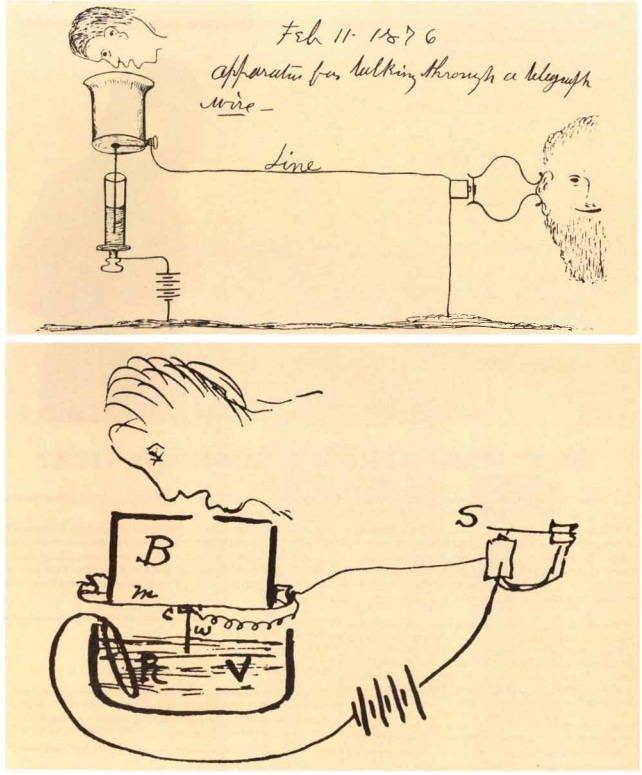 Feb 11. 1876
apparatus for talking through a telegraph
wire —
Line
S
B
m
c
w
R V